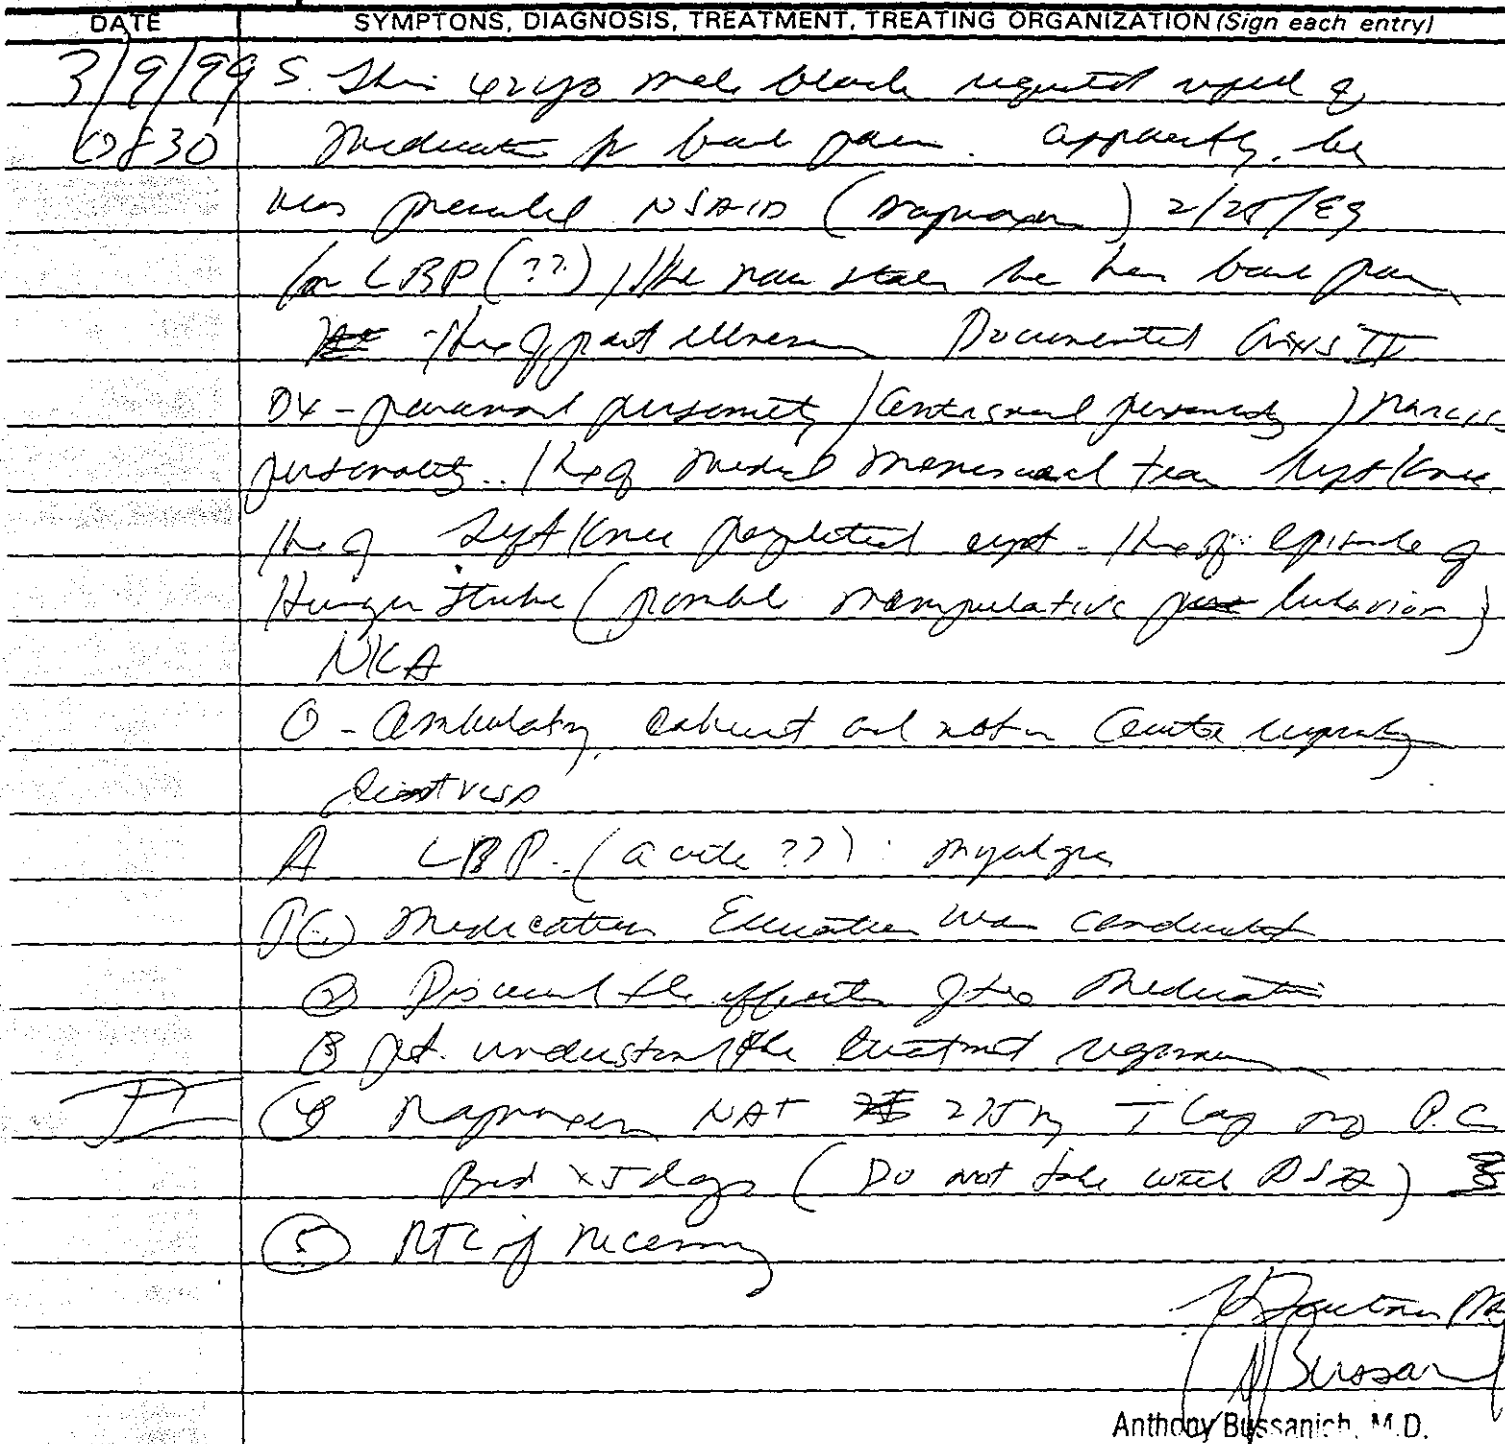 DATE SYMPTONS, DIAGNOSIS, TREATMENT, TREATING ORGANIZATION (Sign each entry)
3/9/99 S. This 42 y/o male black requested refill of
0830 medication for back pain. apparently, he
was prescribed NSAID (naproxen) 2/25/99
for LBP (??) / He now states he has back pain
Hx of past illness Documented Axis II
DX - paranoid personality / antisocial personality / narcis
personality. / Hx of medial meniscal tear left knee
Hx of left knee popliteal cyst. / Hx of episode of
Hunger strike (possible manipulative behavior)
NKA
O - Ambulatory, and not in acute respiratory
distress
A LBP. (acute ??) : myalgia
P (1) Medication Education was conducted
(2) Discussed the effects of the medication
(3) pt. understand the treatment regimen
(4) Naproxen 275 mg T P.C
Bid x 5 days (Do not take with)
(5) RTC if necessary
Bussanich
Anthony Bussanich, M.D.